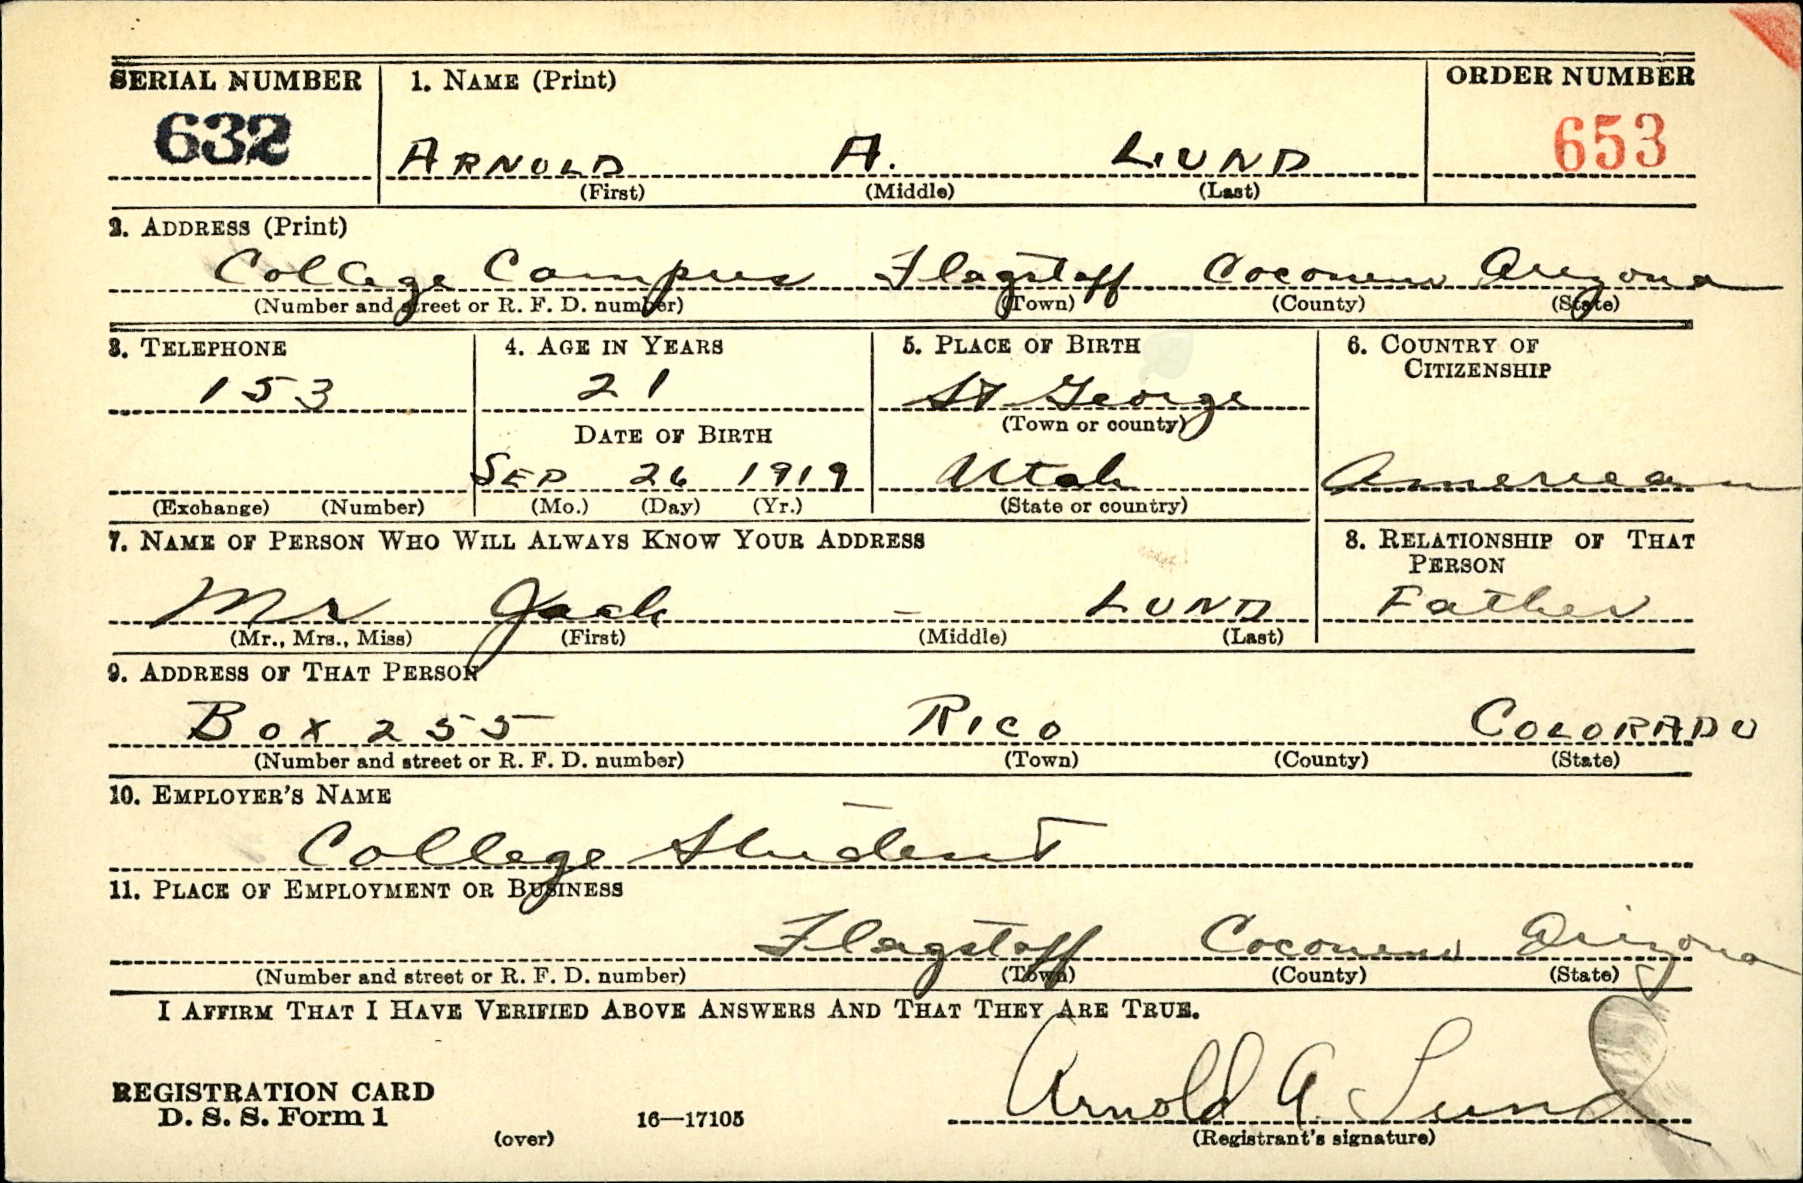 SERIAL NUMBER 1. NAME (Print) ORDER NUMBER
632 ARNOLD A. LUND 653
(First) (Middle) (Last)
2. ADDRESS (Print)
College Campus Flagstaff Coconino Arizona
(Number and street or R. F. D. number) (Town) (County) (State)
3. TELEPHONE 4. AGE IN YEARS 5. PLACE OF BIRTH 6. COUNTRY OF
CITIZENSHIP
153 21 St George
(Town or county)
DATE OF BIRTH
SEP 26 1919 Utah American
(Exchange) (Number) (Mo.) (Day) (Yr.) (State or country)
7. NAME OF PERSON WHO WILL ALWAYS KNOW YOUR ADDRESS 8. RELATIONSHIP OF THAT
PERSON
Mr Jack – LUND Father
(Mr., Mrs., Miss) (First) (Middle) (Last)
9. ADDRESS OF THAT PERSON
Box 255 RICO COLORADO
(Number and street or R. F. D. number) (Town) (County) (State)
10. EMPLOYER'S NAME
College Student
11. PLACE OF EMPLOYMENT OR BUSINESS
Flagstaff Coconino Arizona
(Number and street or R. F. D. number) (Town) (County) (State)
I AFFIRM THAT I HAVE VERIFIED ABOVE ANSWERS AND THAT THEY ARE TRUE.
REGISTRATION CARD
D. S. S. Form 1 16—17105 Arnold A. Lund
(over) (Registrant's signature)